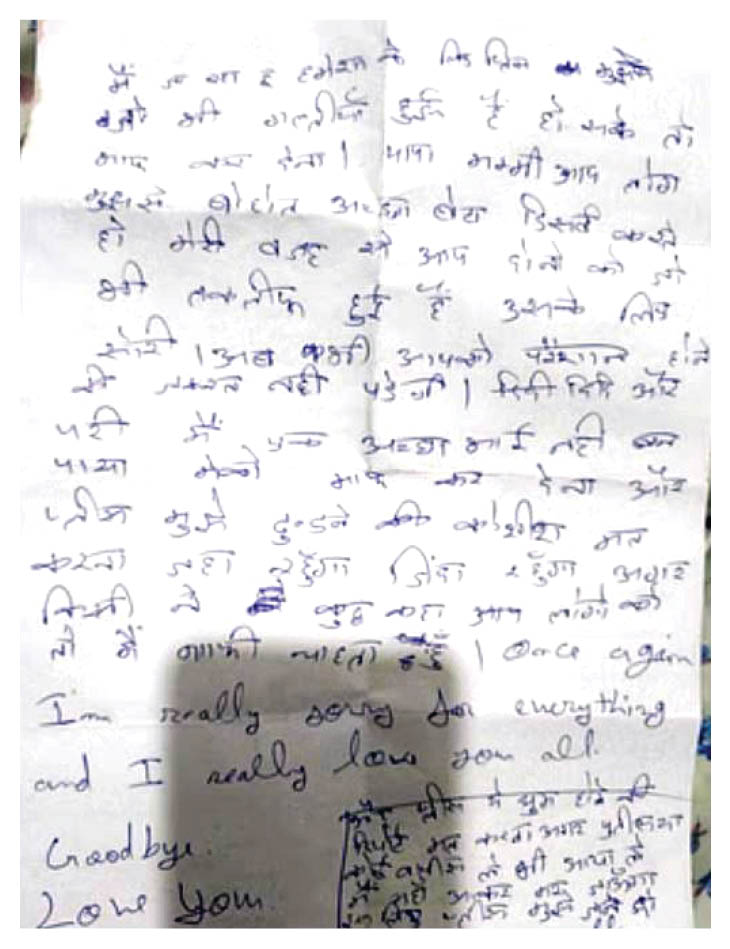 मैं जा रहा हु हमेशा के लिए
भी गलतीयाँ हुई है हो सके तो
माफ कर देना । पापा मम्मी आप लोग
मुझसे बोहोत अच्छा बेटा डिसर्व करते
हो मेरी वजह से आप दोनो को जो
भी तकलीफ हुई हैं उसके लिए
सोरी । अब कभी आपको परेशान होने
की जरूरत नही पडेगी । दिदी और
परी मैं एक अच्छा भाई नही बन
पाया मेको माफ कर देना और
प्लीज मुझे ढुन्डने की कोशीश मत
करना जहा रहुँगा जिंदा रहुँगा अगर
किसी ने कुछ कहा आप लोगो को
तो मैं माफी चाहता हुँ । Once again
I'm really sorry for everything
and I really love you all.
Goodbye.
Love You.
और प्लीज मे गुम होने की
रिपोर्ट मत करना अगर पुलीस